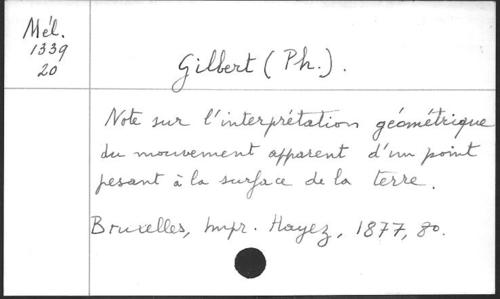 Mél.
1339
20
Gilbert (Ph.).
Note sur l'interprétation géométrique
du mouvement apparent d'un point
pesant à la surface de la terre.
Bruxelles, Impr. Hayez, 1877, 8o.